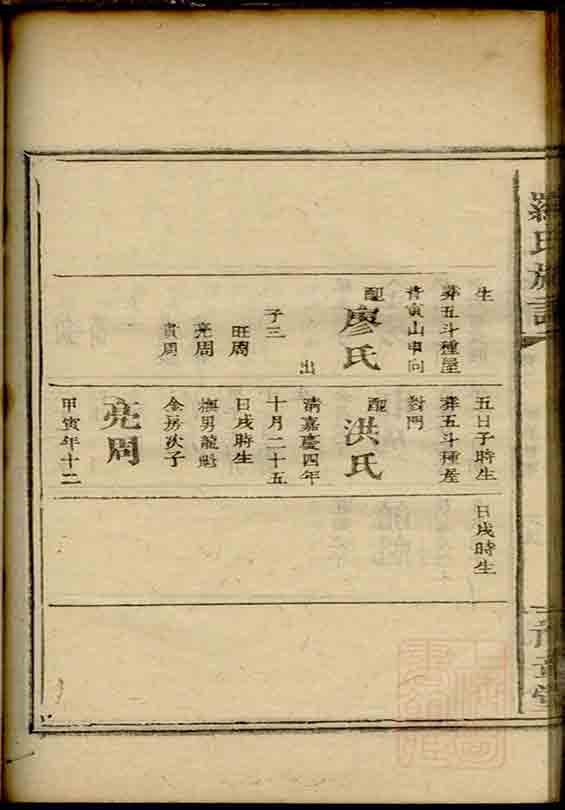 羅氏族譜
生
葬五斗種屋
背寅山申向
配
廖氏
出
子三
旺周
亮周
貴周
五日子時生
葬五斗種屋
對門
配
洪氏
清嘉慶四年
十月二十五
日戌時生
撫男龍魁
金房次子
亮周
甲寅年十二
日戌時生